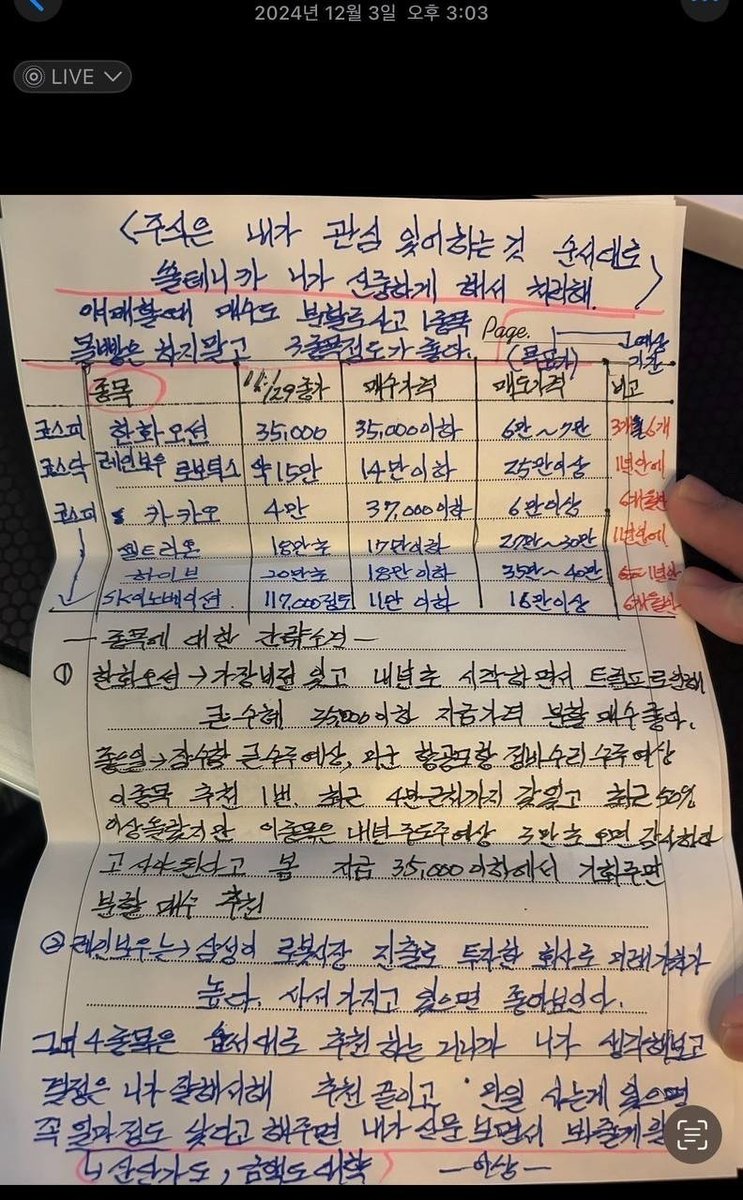 2024년 12월 3일 오후 3:03
LIVE
<주식은 내가 관심 있어하는것 순서대로
쓸테니까 니가 신중하게 해서 처리해.>
애매할때 매수도 분할로 사고 1종목
몰빵은 하지말고 3종목정도가 좋다.
Page.
예상
기간
종목 11/29종가 매수가격 매도가격 비고
코스피 한화오션 35,000 35,000이하 6만~7만 3개월 6개
코스닥 레인보우 로보틱스 약15만 14만이하 25만이상 1년안에
코스피 카카오 4만 37,000이하 6만이상
셀트리온 18만초 17만이하 27만~30만 1년안에
하이브 20만초 18만이하 35만~40만
SK이노베이션 117,000정도 11만이하 16만이상
-종목에 대한 간략소견-
① 한화오션→가장비전 있고 내년초 시작하면서 트럼프로인해
큰수혜 35,000이하 지금가격 분할매수좋다.
좋은일→잠수함 큰수주예상, 미군 항공모함 정비수리 수주예상
이종목 추천 1번. 최근 4만근처까지 갔었고 최근 50%
이상올랐지만 이종목은 내년주도주예상 3만초 오면 감사하다
고 사야된다고 봄 지금 35,000이하에서 기회주면
분할매수 추천
② 레인보우는→삼성이 로봇시장 진출로 투자한 회사로 미래가치가
높다. 사서 가지고 있으면 좋아보인다.
그외 4종목은 순서대로 추천하는 거니까 니가 생각해보고
결정은 니가 잘해서해 추천 끝이고 만일 사는게 있으면
꼭 얼마정도 샀다고 해주면 내가 신문보면서 봐줄게
니 산단가도, 금액도 대략 -이상-